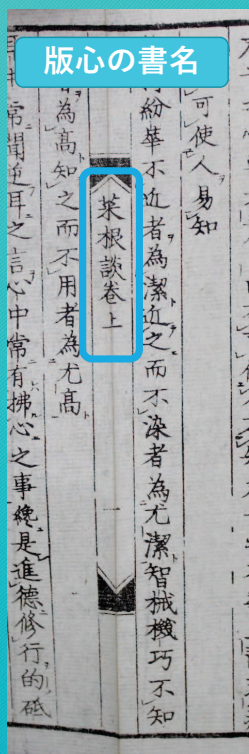 版心の書名
可使人易知
紛華不近者為潔近之而不染者為尤潔智械機巧不知
菜根談卷上
一
為高知之而不用者為尤高
常聞逆耳之言心中常有拂心之事纔是進德修行的砥